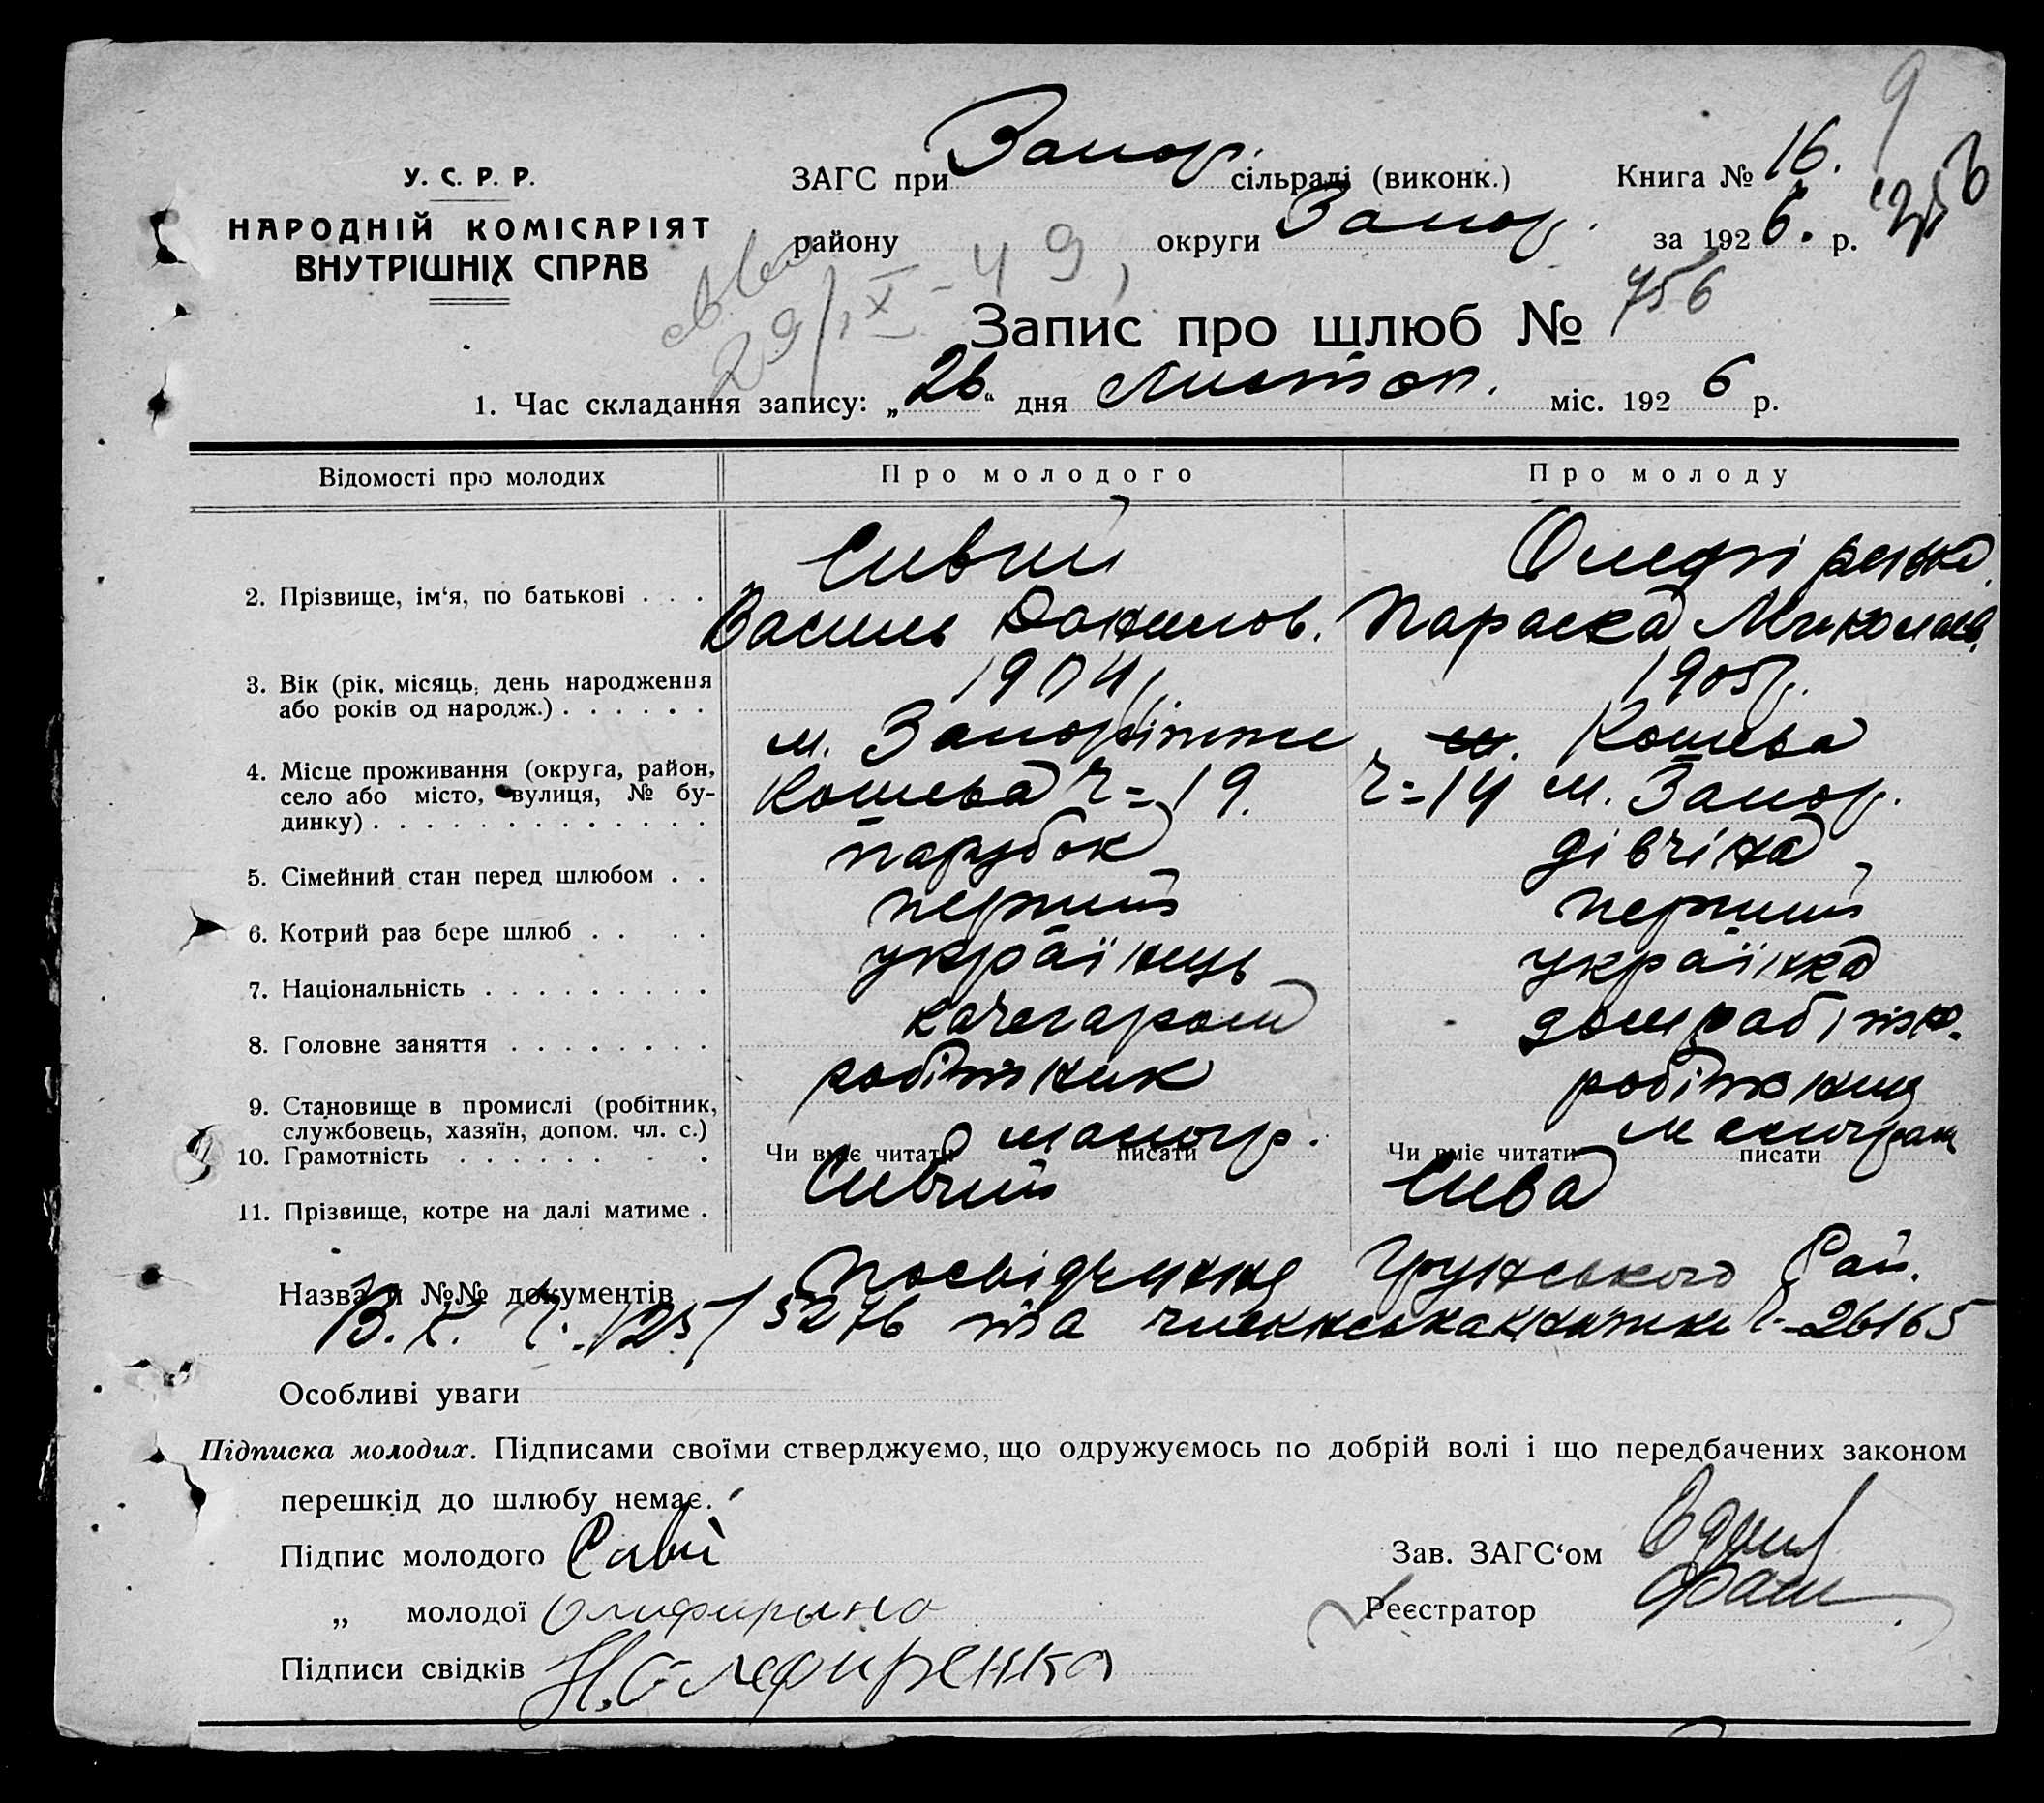 У. С. Р. Р.
НАРОДНІЙ КОМІСАРІЯТ
ВНУТРІШНІХ СПРАВ
ЗАГС при Запор. сільраді (виконк.) Книга № 16. 9
району округи Запор. за 1926. р.
29/IX-49,
Запис про шлюб № 756
1. Час складання запису: „26“ дня Листоп. міс. 1926 р.
Відомості про молодих
Про молодого
Про молоду
2. Прізвище, ім‘я, по батькові . . .
Сивий
Василь
Олефіренко
Параска Миколаєв.
3. Вік (рік, місяць, день народження
або років од народж.) . . . . . .
1904 р.
1905 р.
4. Місце проживання (округа, район,
село або місто, вулиця, № бу-
динку) . . . . . . . . . . . . .
м. Запоріжже
Кошева ч=19.
Кошева
ч=14 м. Запор.
5. Сімейний стан перед шлюбом . .
парубок
дівчіна
6. Котрий раз бере шлюб . . . .
перший
перший
7. Національність . . . . . . . . .
українець
українка
8. Головне заняття . . . . . . . .
качегаром
домробітн.
9. Становище в промислі (робітник,
службовець, хазяїн, допом. чл. с.)
робітник
робітниця
10. Грамотність . . . . . . . .
Чи вміє читати писати
малогр.
Чи вміє читати писати
малограм
11. Прізвище, котре на далі матиме .
Сивий
Сива
Назва й №№ документів
Посвідчення Рай.
В. К. Ч. 1257 5276 та членська книжка ч-26165
Особливі уваги
Підписка молодих. Підписами своїми стверджуємо, що одружуємось по добрій волі і що передбачених законом
перешкід до шлюбу немає.
Підпис молодого Сивий
Зав. ЗАГС‘ом
„ молодої
Реєстратор
Підписи свідків Н. Олефиренко